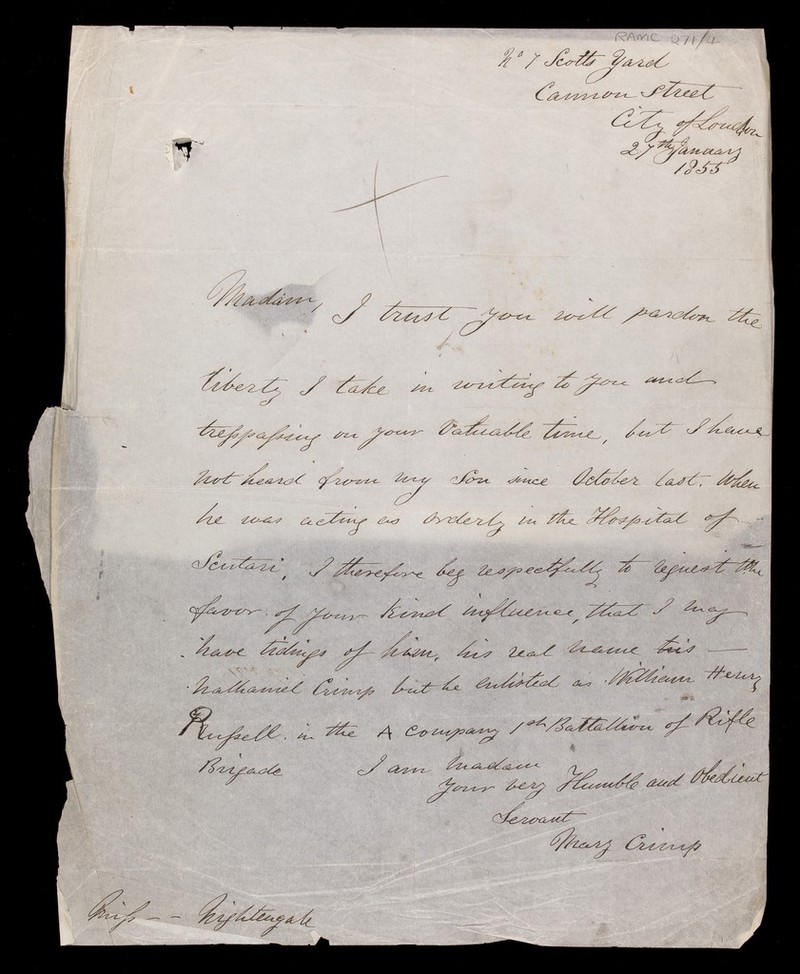 RAMC 271/4
No 7 Scotts Yard
Cannon Street
City of London
27th January
1855
Madam, I trust you will pardon the
liberty I take in writing to you and
trespassing on your Valuable time, but I have
not heard from my Son since October last. When
he was acting as Orderly in the Hospital of
Scutari, I therefore beg respectfully to request the
favor of your kind influence, that I may
have tidings of him, his real name is —
Nathaniel Crimp but he enlisted as William Henry
Russell. in the A Company 1st Battallion of Rifle
Brigade I am Madam
your very Humble and Obedient
Servant
Mary Crimp
Miss - - Nightengale